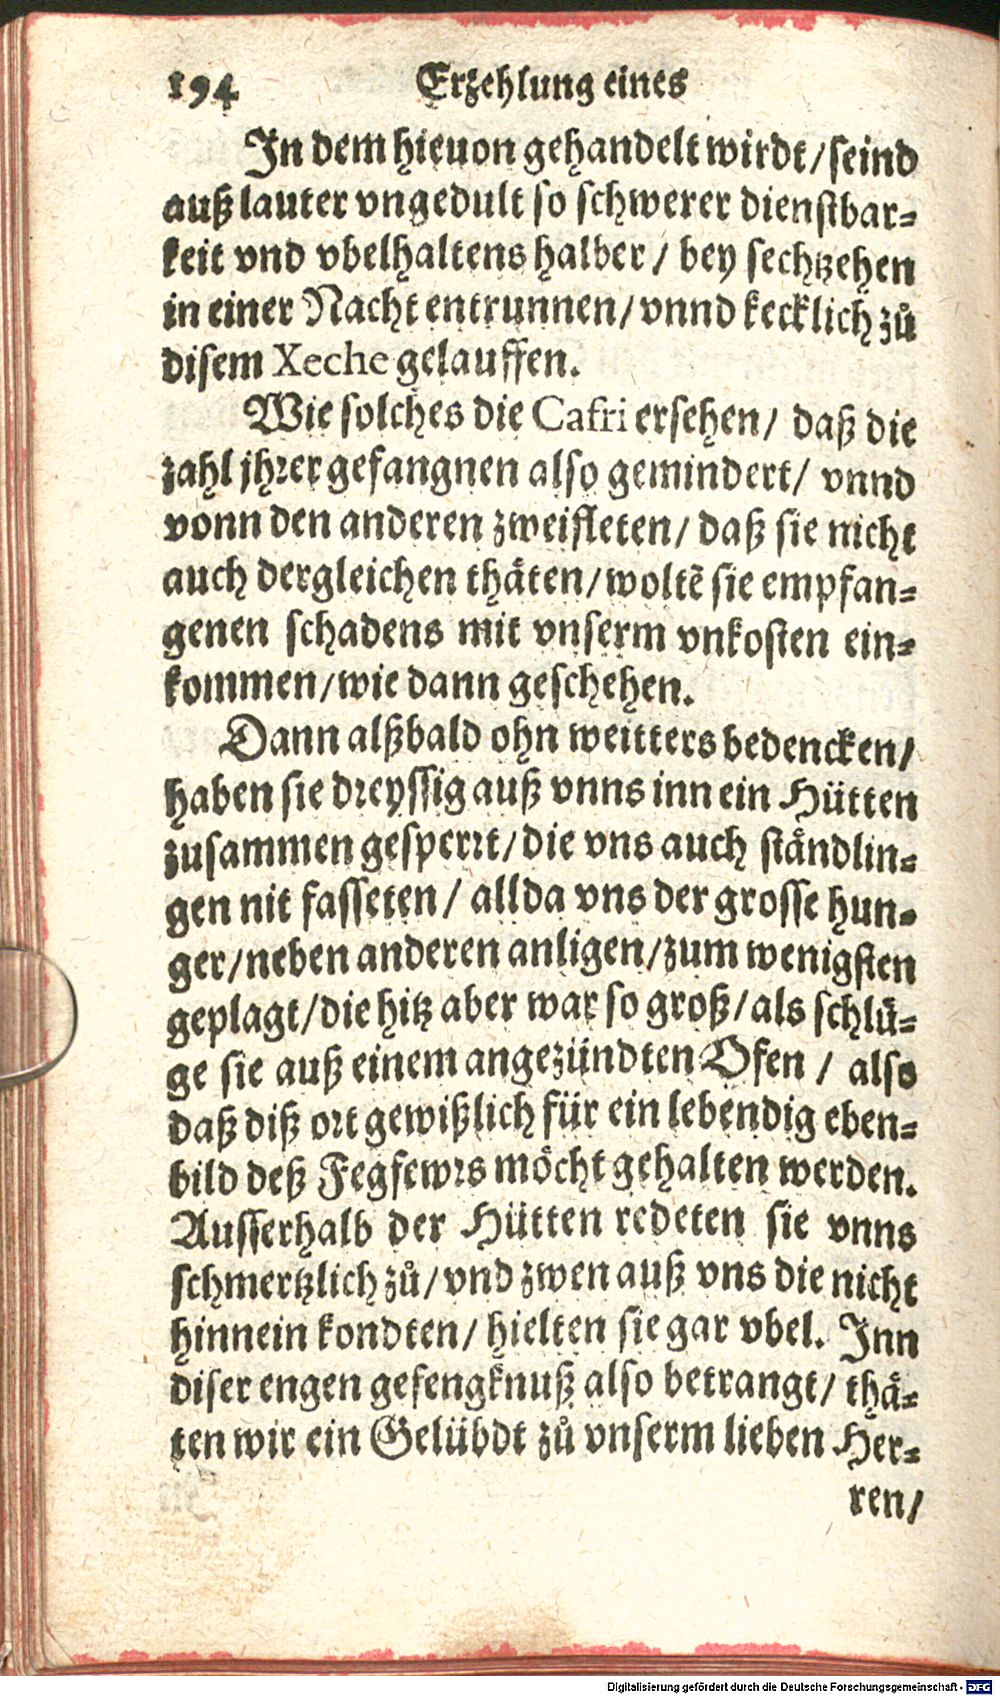 194 Erzehlung eines
In dem hieuon gehandelt wirdt/ seind
auß lauter vngedult so schwerer dienstbar⸗
keit vnd vbelhaltens halber/ bey sechtzehen
in einer Nacht entrunnen/ vnnd kecklich zů
disem Xeche gelauffen.
Wie solches die Cafri ersehen/ daß die
zahl jhrer gefangnen also gemindert/ vnnd
vonn den anderen zweifleten/ daß sie nicht
auch dergleichen thäten/ woltē sie empfan⸗
genen schadens mit vnserm vnkosten ein⸗
kommen/ wie dann geschehen.
Dann alßbald ohn weitters bedencken/
haben sie dreyssig auß vnns inn ein Hütten
zusammen gesperrt/ die vns auch ständlin⸗
gen nit fasseten/ allda vns der grosse hun⸗
ger/ neben anderen anligen/ zum wenigsten
geplagt/ die hitz aber war so groß/ als schlü⸗
ge sie auß einem angezündten Ofen / also
daß diß ort gewißlich für ein lebendig eben⸗
bild deß Fegfewrs möcht gehalten werden.
Ausserhalb der Hütten redeten sie vnns
schmertzlich zů/ vnd zwen auß vns die nicht
hinnein kondten/ hielten sie gar vbel. Inn
diser engen gefengknuß also betrangt/ thä⸗
ten wir ein Gelübdt zů vnserm lieben Her⸗
ren/
Digitalisierung gefördert durch die Deutsche Forschungsgemeinschaft - DFG